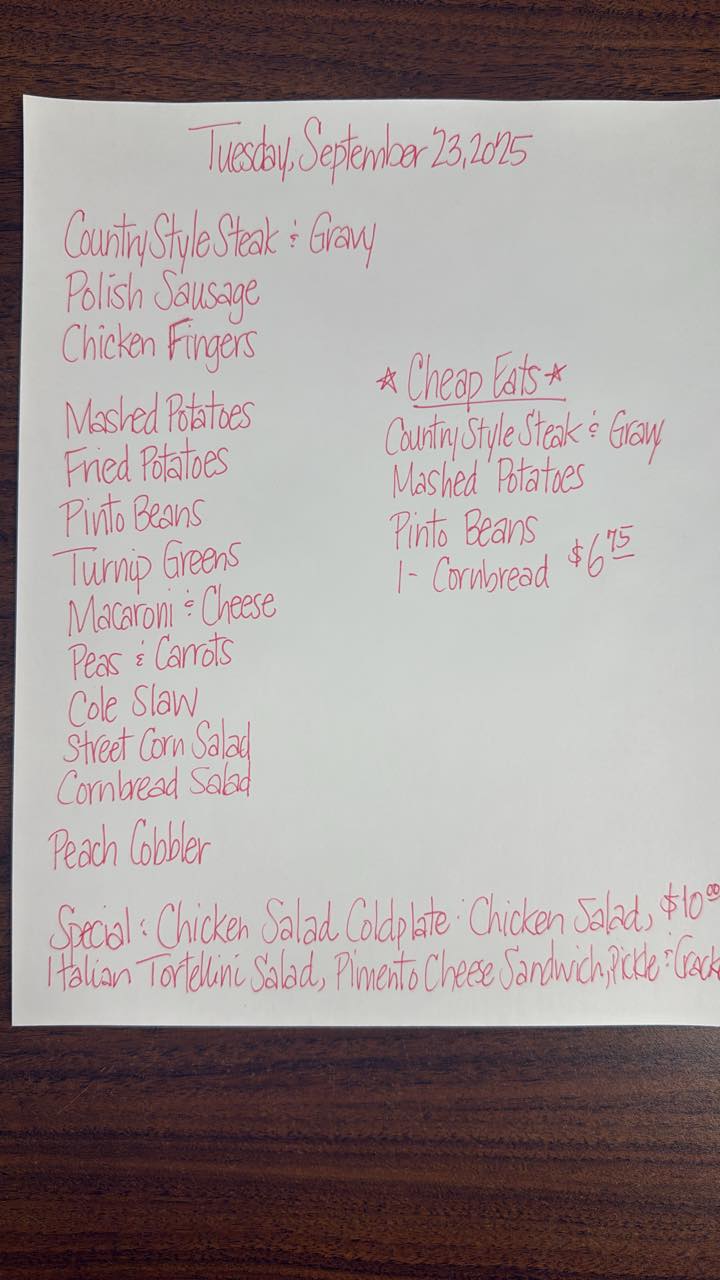 Tuesday, September 23, 2025
Country Style Steak & Gravy
Polish Sausage
Chicken Fingers
Mashed Potatoes
Fried Potatoes
Pinto Beans
Turnip Greens
Macaroni & Cheese
Peas & Carrots
Cole Slaw
Street Corn Salad
Cornbread Salad
Peach Cobbler
☆ Cheap Eats ☆
Country Style Steak & Gravy
Mashed Potatoes
Pinto Beans
1- Cornbread $6.75
Special: Chicken Salad Coldplate: Chicken Salad, $10.00
Italian Tortellini Salad, Pimento Cheese Sandwich, Pickle & Crack